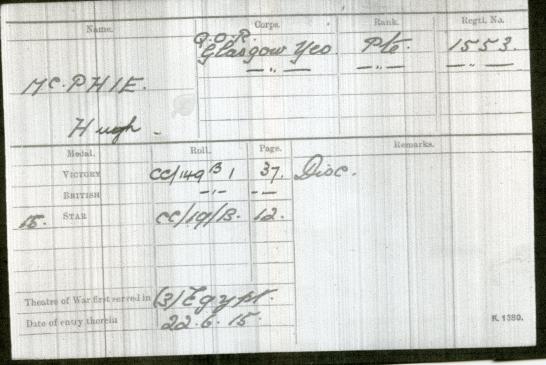 Name. Corps. Rank. Regtl. No.
Q.O.R.
Glasgow Yeo Pte. 1553.
— " — — " — — " —
McPHIE.
Hugh -
Medal. Roll. Page. Remarks.
VICTORY CC/149 B 1 37. Disc.
BRITISH — " — — " —
15. STAR CC/19/B. 12.
Theatre of War first served in (3) Egypt.
Date of entry therein 22.6.15.
K. 1380.